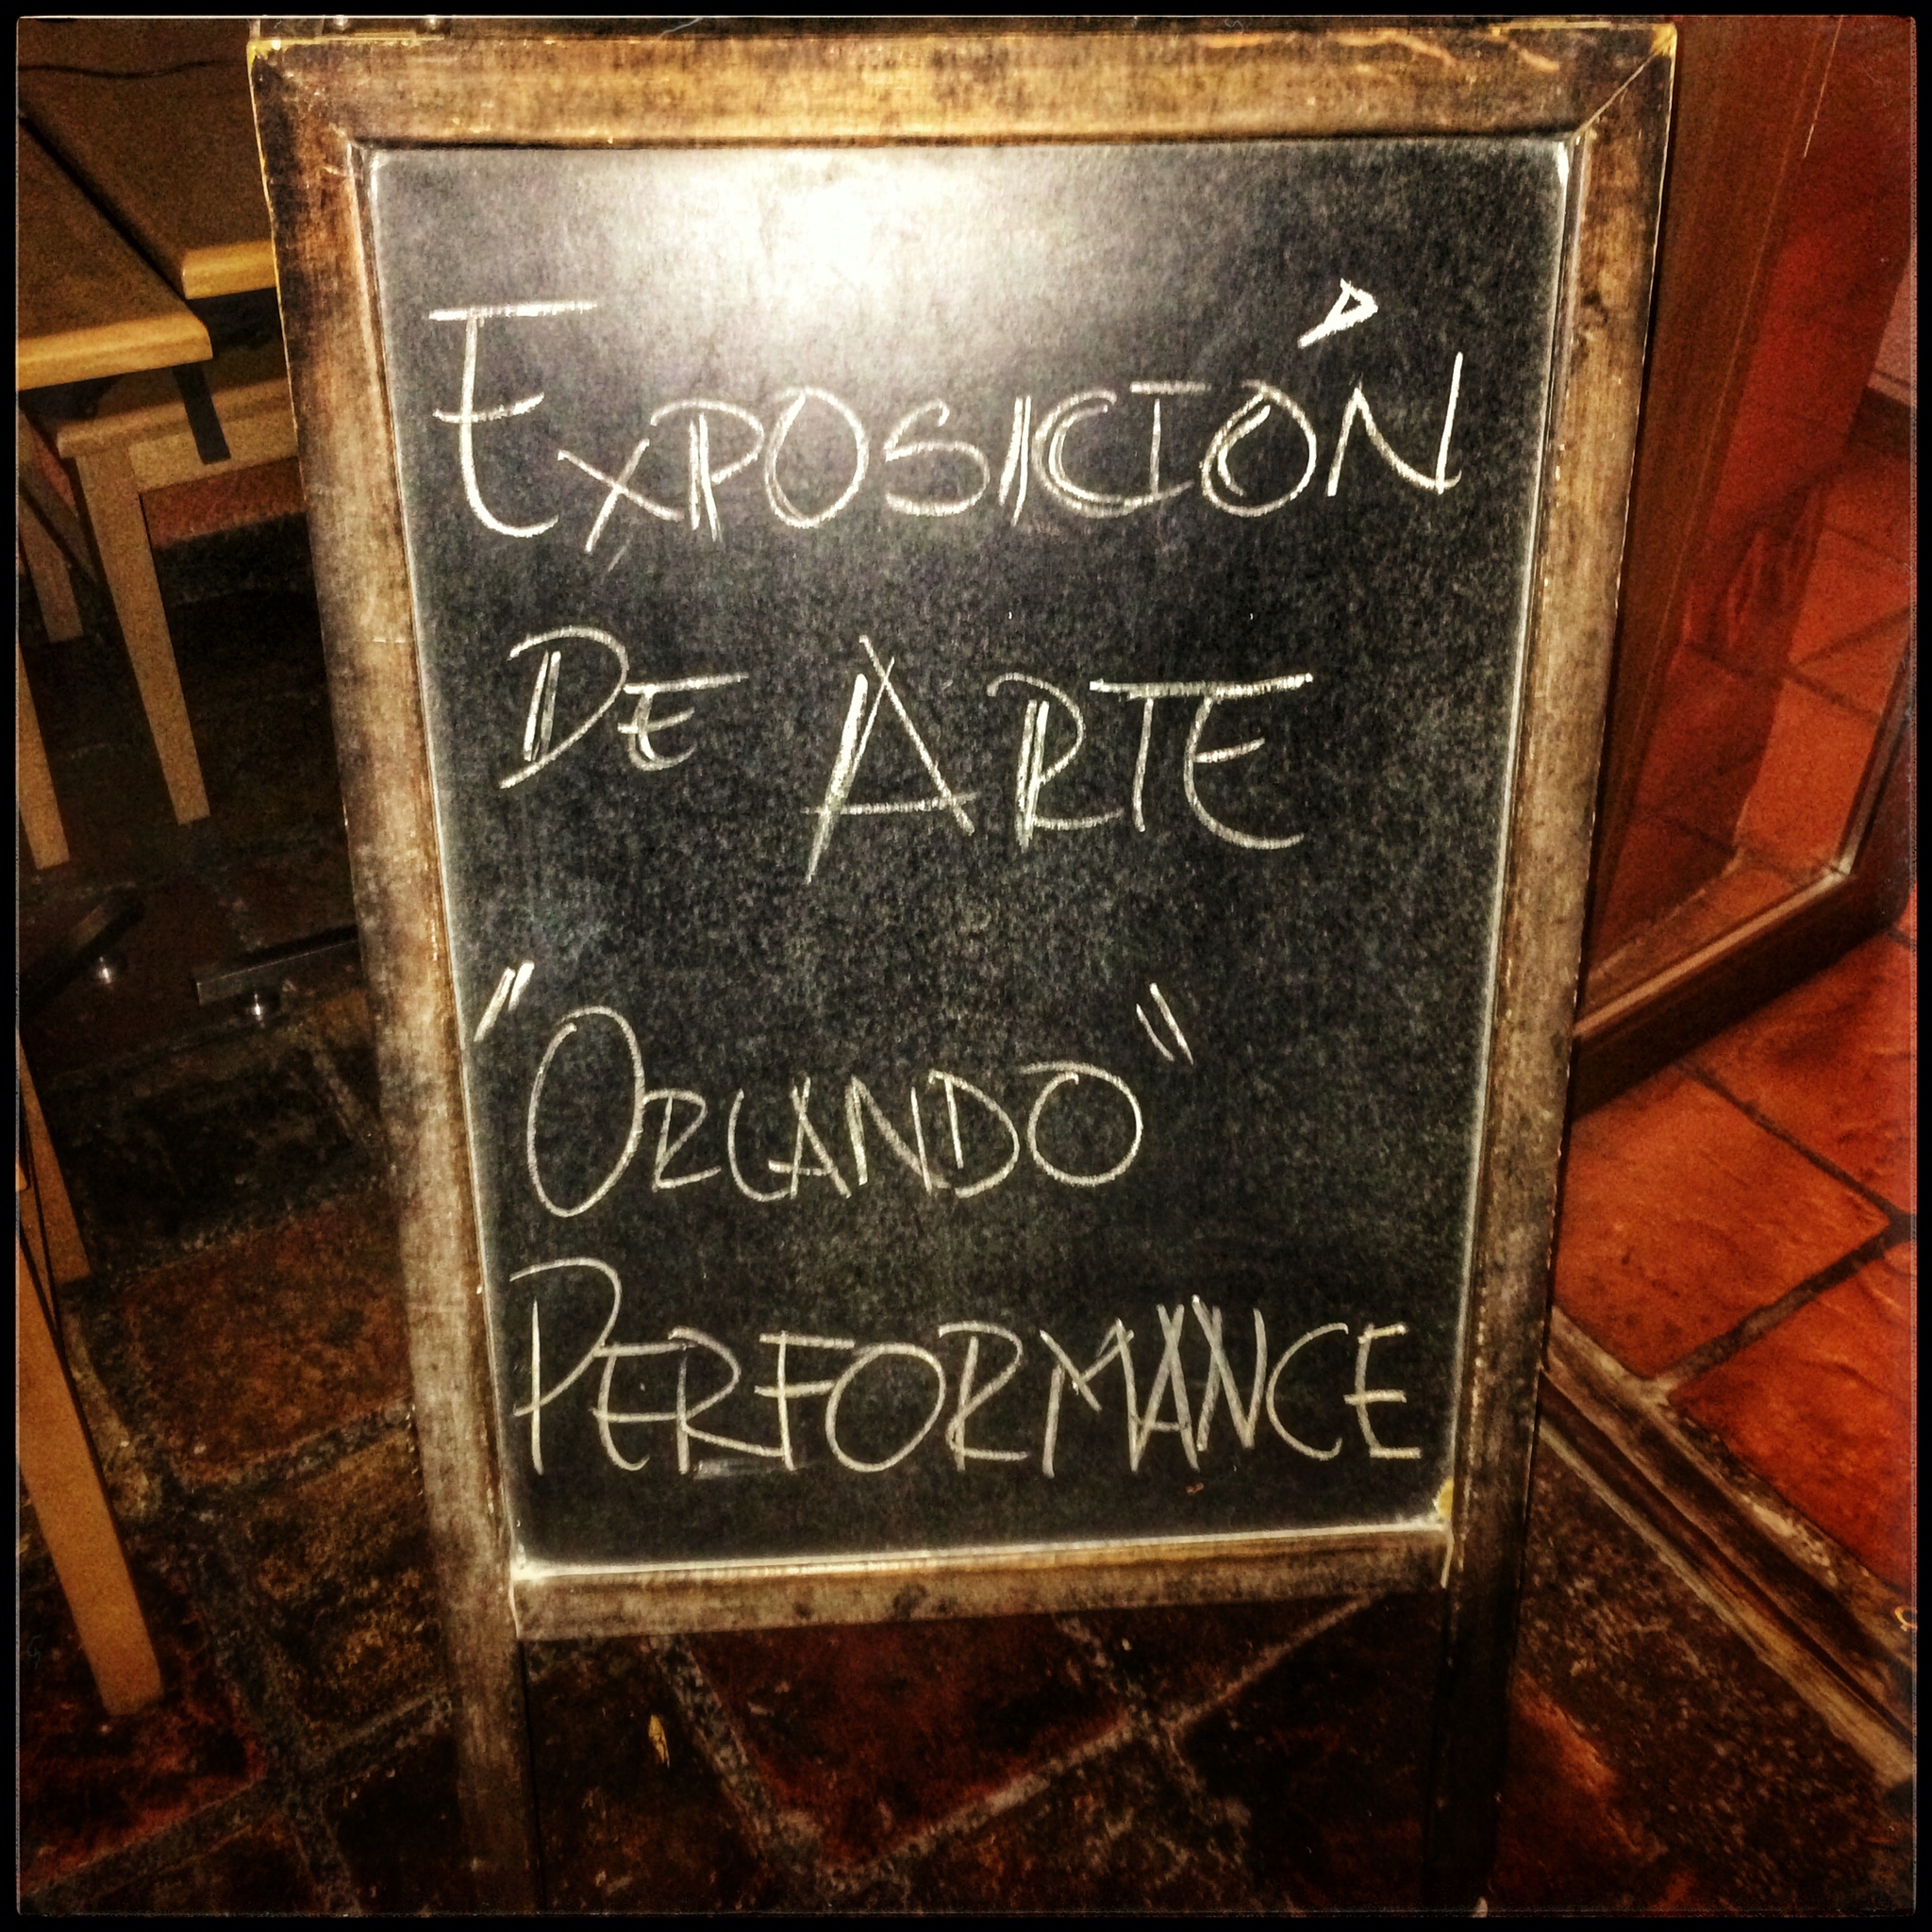 EXPOSICIÓN
DE ARTE
"ORLANDO"
PERFORMANCE